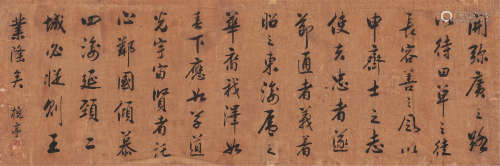 開彌廣之路
以待田單之徒
長容善之風以
申齊士之志
使夫忠者遂
節通者義著
昭之東海屬之
華裔我澤如
春下應如草道
光宇宙賢者託
心鄰國傾慕
四海延頸二
城必從則王
業隆矣